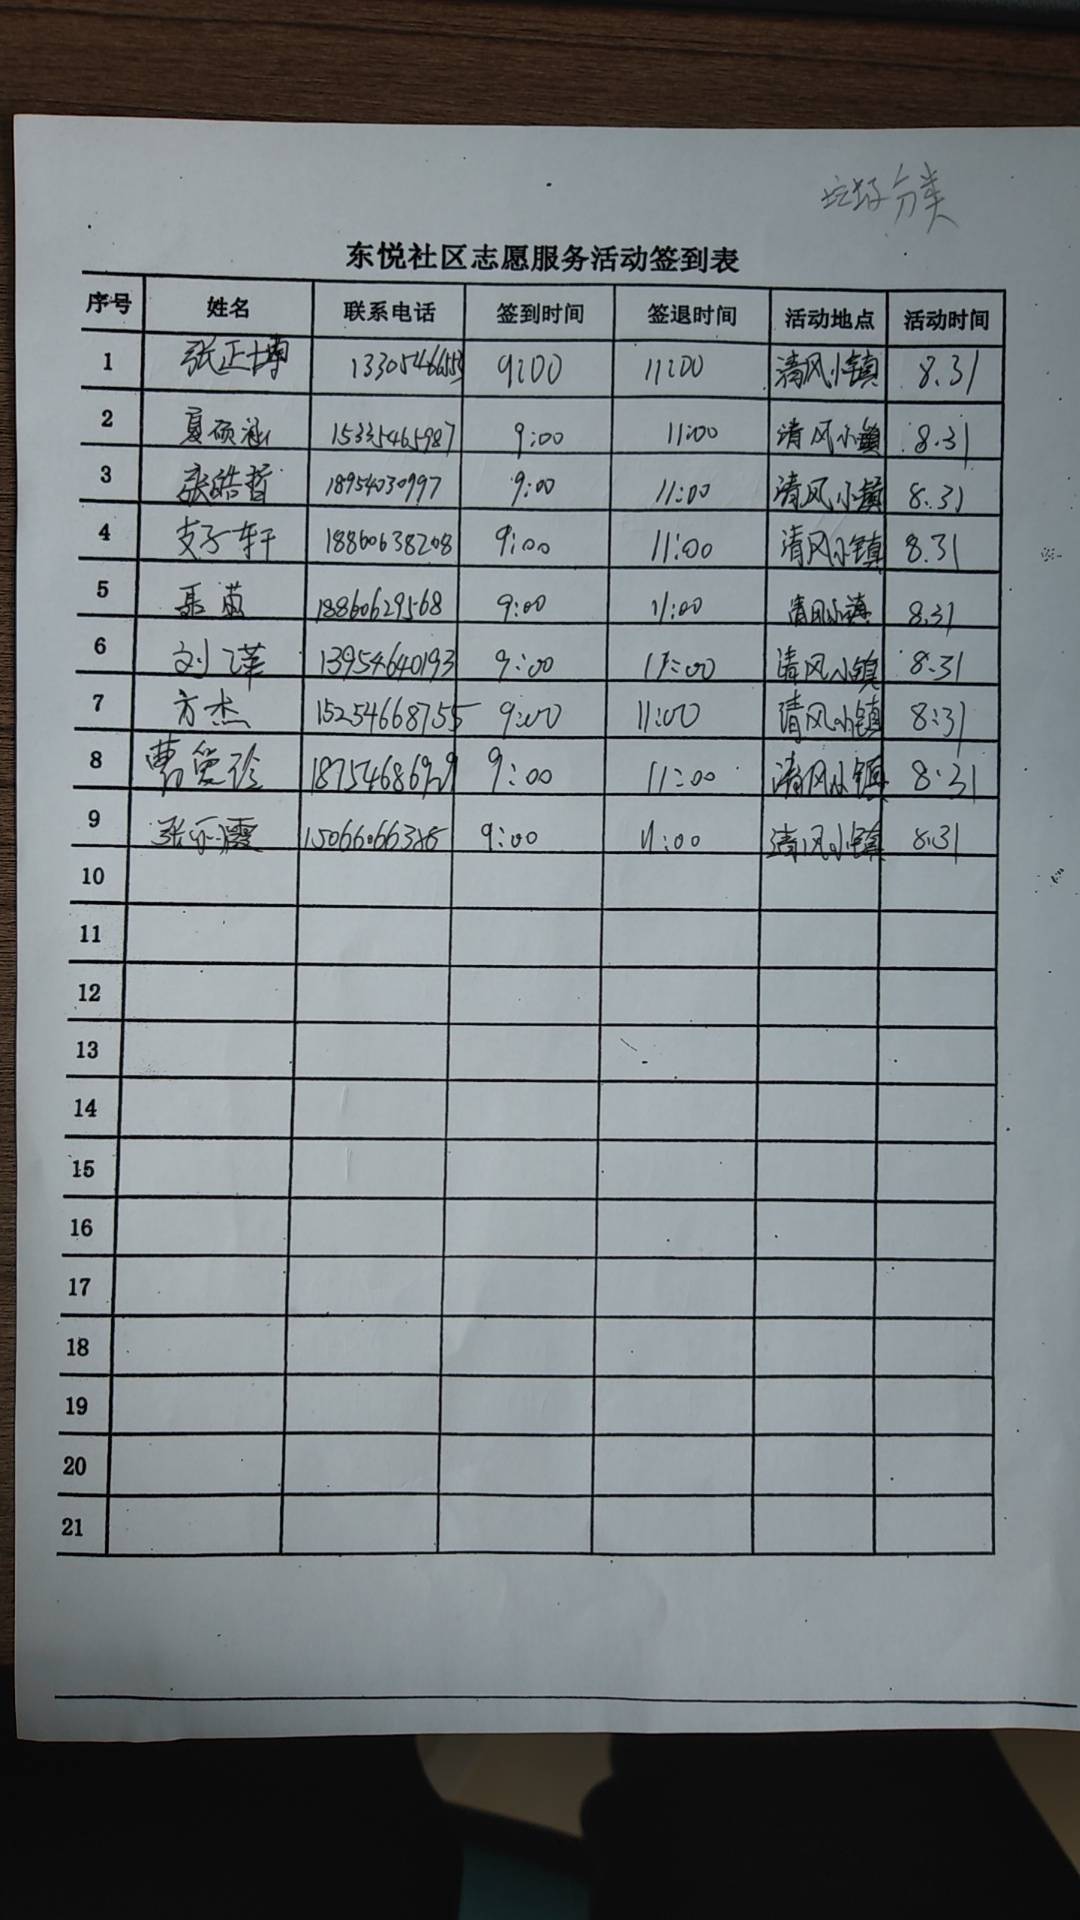 垃圾分类
东悦社区志愿服务活动签到表
序号 姓名 联系电话 签到时间 签退时间 活动地点 活动时间
1 张正博 9:00 11:00 清风小镇 8.31
2 夏硕涵 15335465987 9:00 11:00 清风小镇 8.31
3 张皓哲 18954030997 9:00 11:00 清风小镇 8.31
4 支子轩 18860638208 9:00 11:00 清风小镇 8.31
5 18860629568 9:00 11:00 清风小镇 8.31
6 刘 13954640193 9:00 11:00 清风小镇 8.31
7 方杰 15254668755 9:00 11:00 清风小镇 8.31
8 曹爱珍 18754686929 9:00 11:00 清风小镇 8.31
9 张 霞 9:00 11:00 清风小镇 8.31
10
11
12
13
14
15
16
17
18
19
20
21